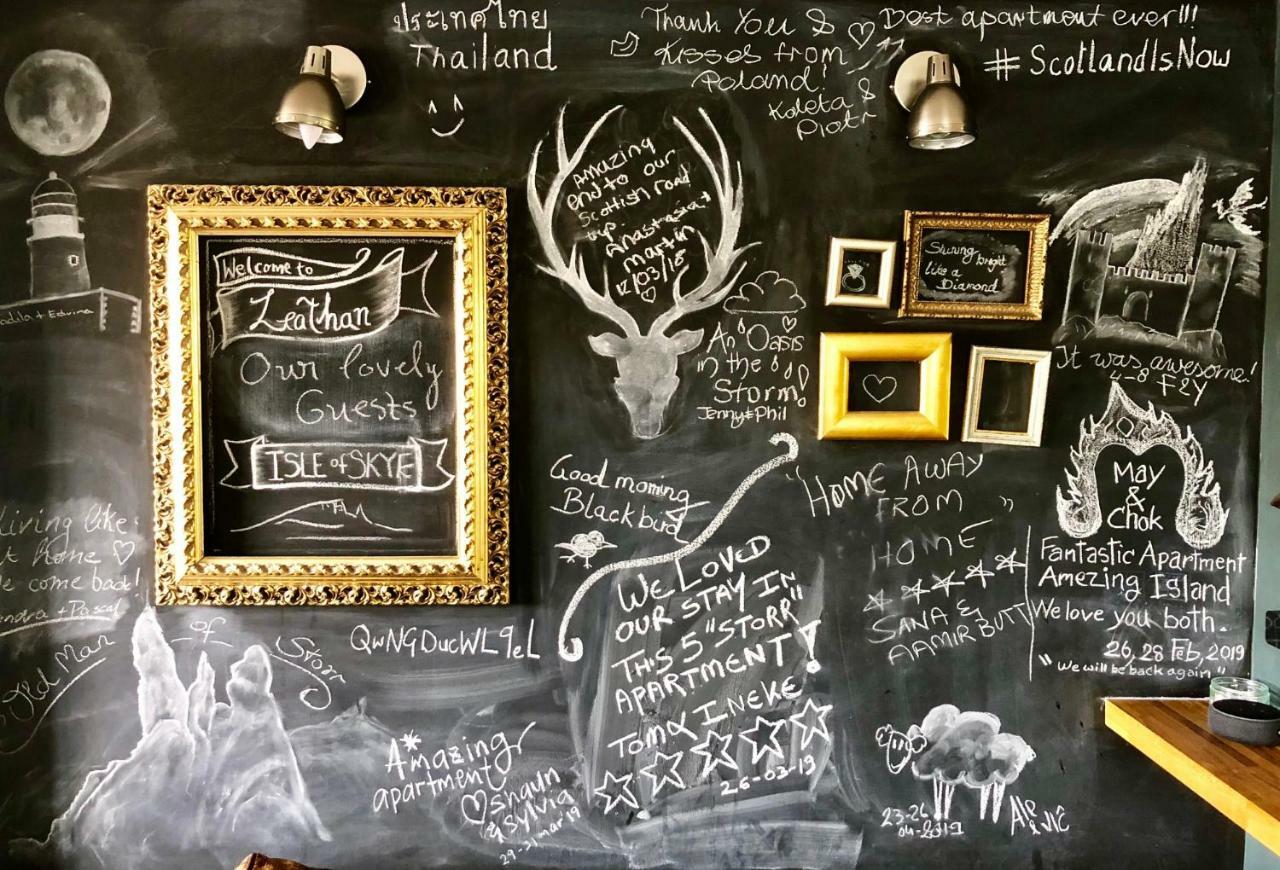 ประเทศไทย
Thailand
Thank You &
Kisses from
Poland!
Koleta &
Piotr
Best apartment ever!!!
#ScotlandIsNow
Amazing
end to our
Scottish road
trip
Anastasia &
Martin
12/03/18
Welcome to
Leathan
Our lovely
Guests
ISLE of SKYE
Shining bright
like a
Diamond
An Oasis
in the
Storm!
Jenny & Phil
It was awesome!
4-8 F
+ Edvina
Living like
home
come back!
+ Pascal
Old Man of Storr
QwNGDucWL9eL
Good morning
Blackbird
WE LOVED
OUR STAY IN
THIS 5 "STORR"
APARTMENT!
TOM & INEKE
26-03-19
"HOME AWAY
FROM "
HOME
SANA &
AAMIR BUTT
May
&
Chok
Fantastic Apartment
Amezing Island
We love you both.
26, 28 Feb, 2019
"We will be back again"
Amazing
apartment
Shaun
& Sylvia
29-31 mar 19
23-26
04-2019